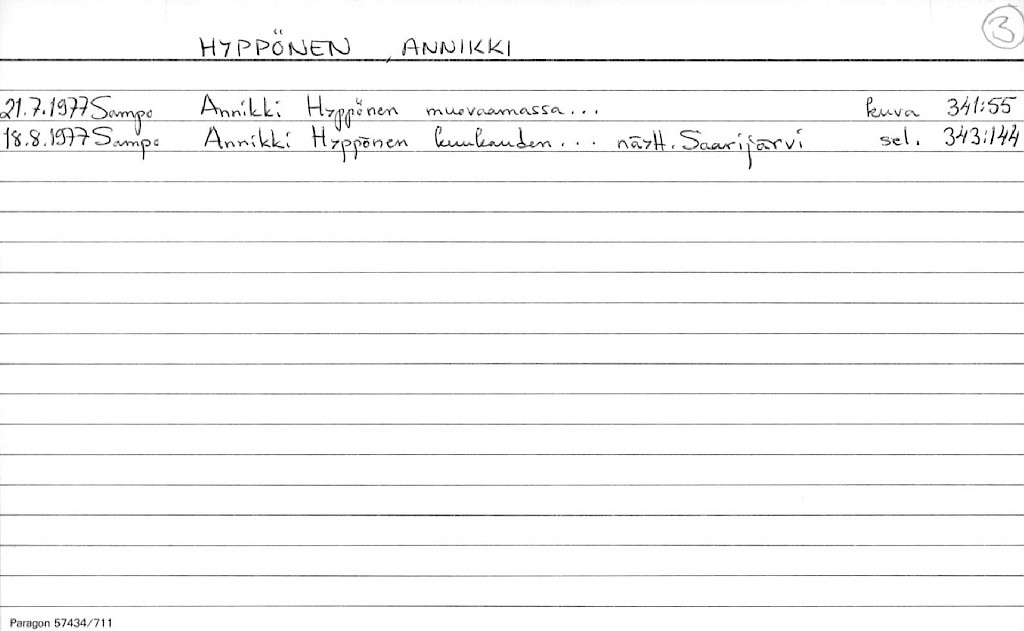 3
HYPPÖNEN, ANNIKKI
21.7.1977 Sampo Annikki Hyppönen muovaamassa... kuva 341:55
18.8.1977 Sampo Annikki Hyppönen kuukauden... näytt. Saarijärvi sel. 343:144
Paragon 57434/711